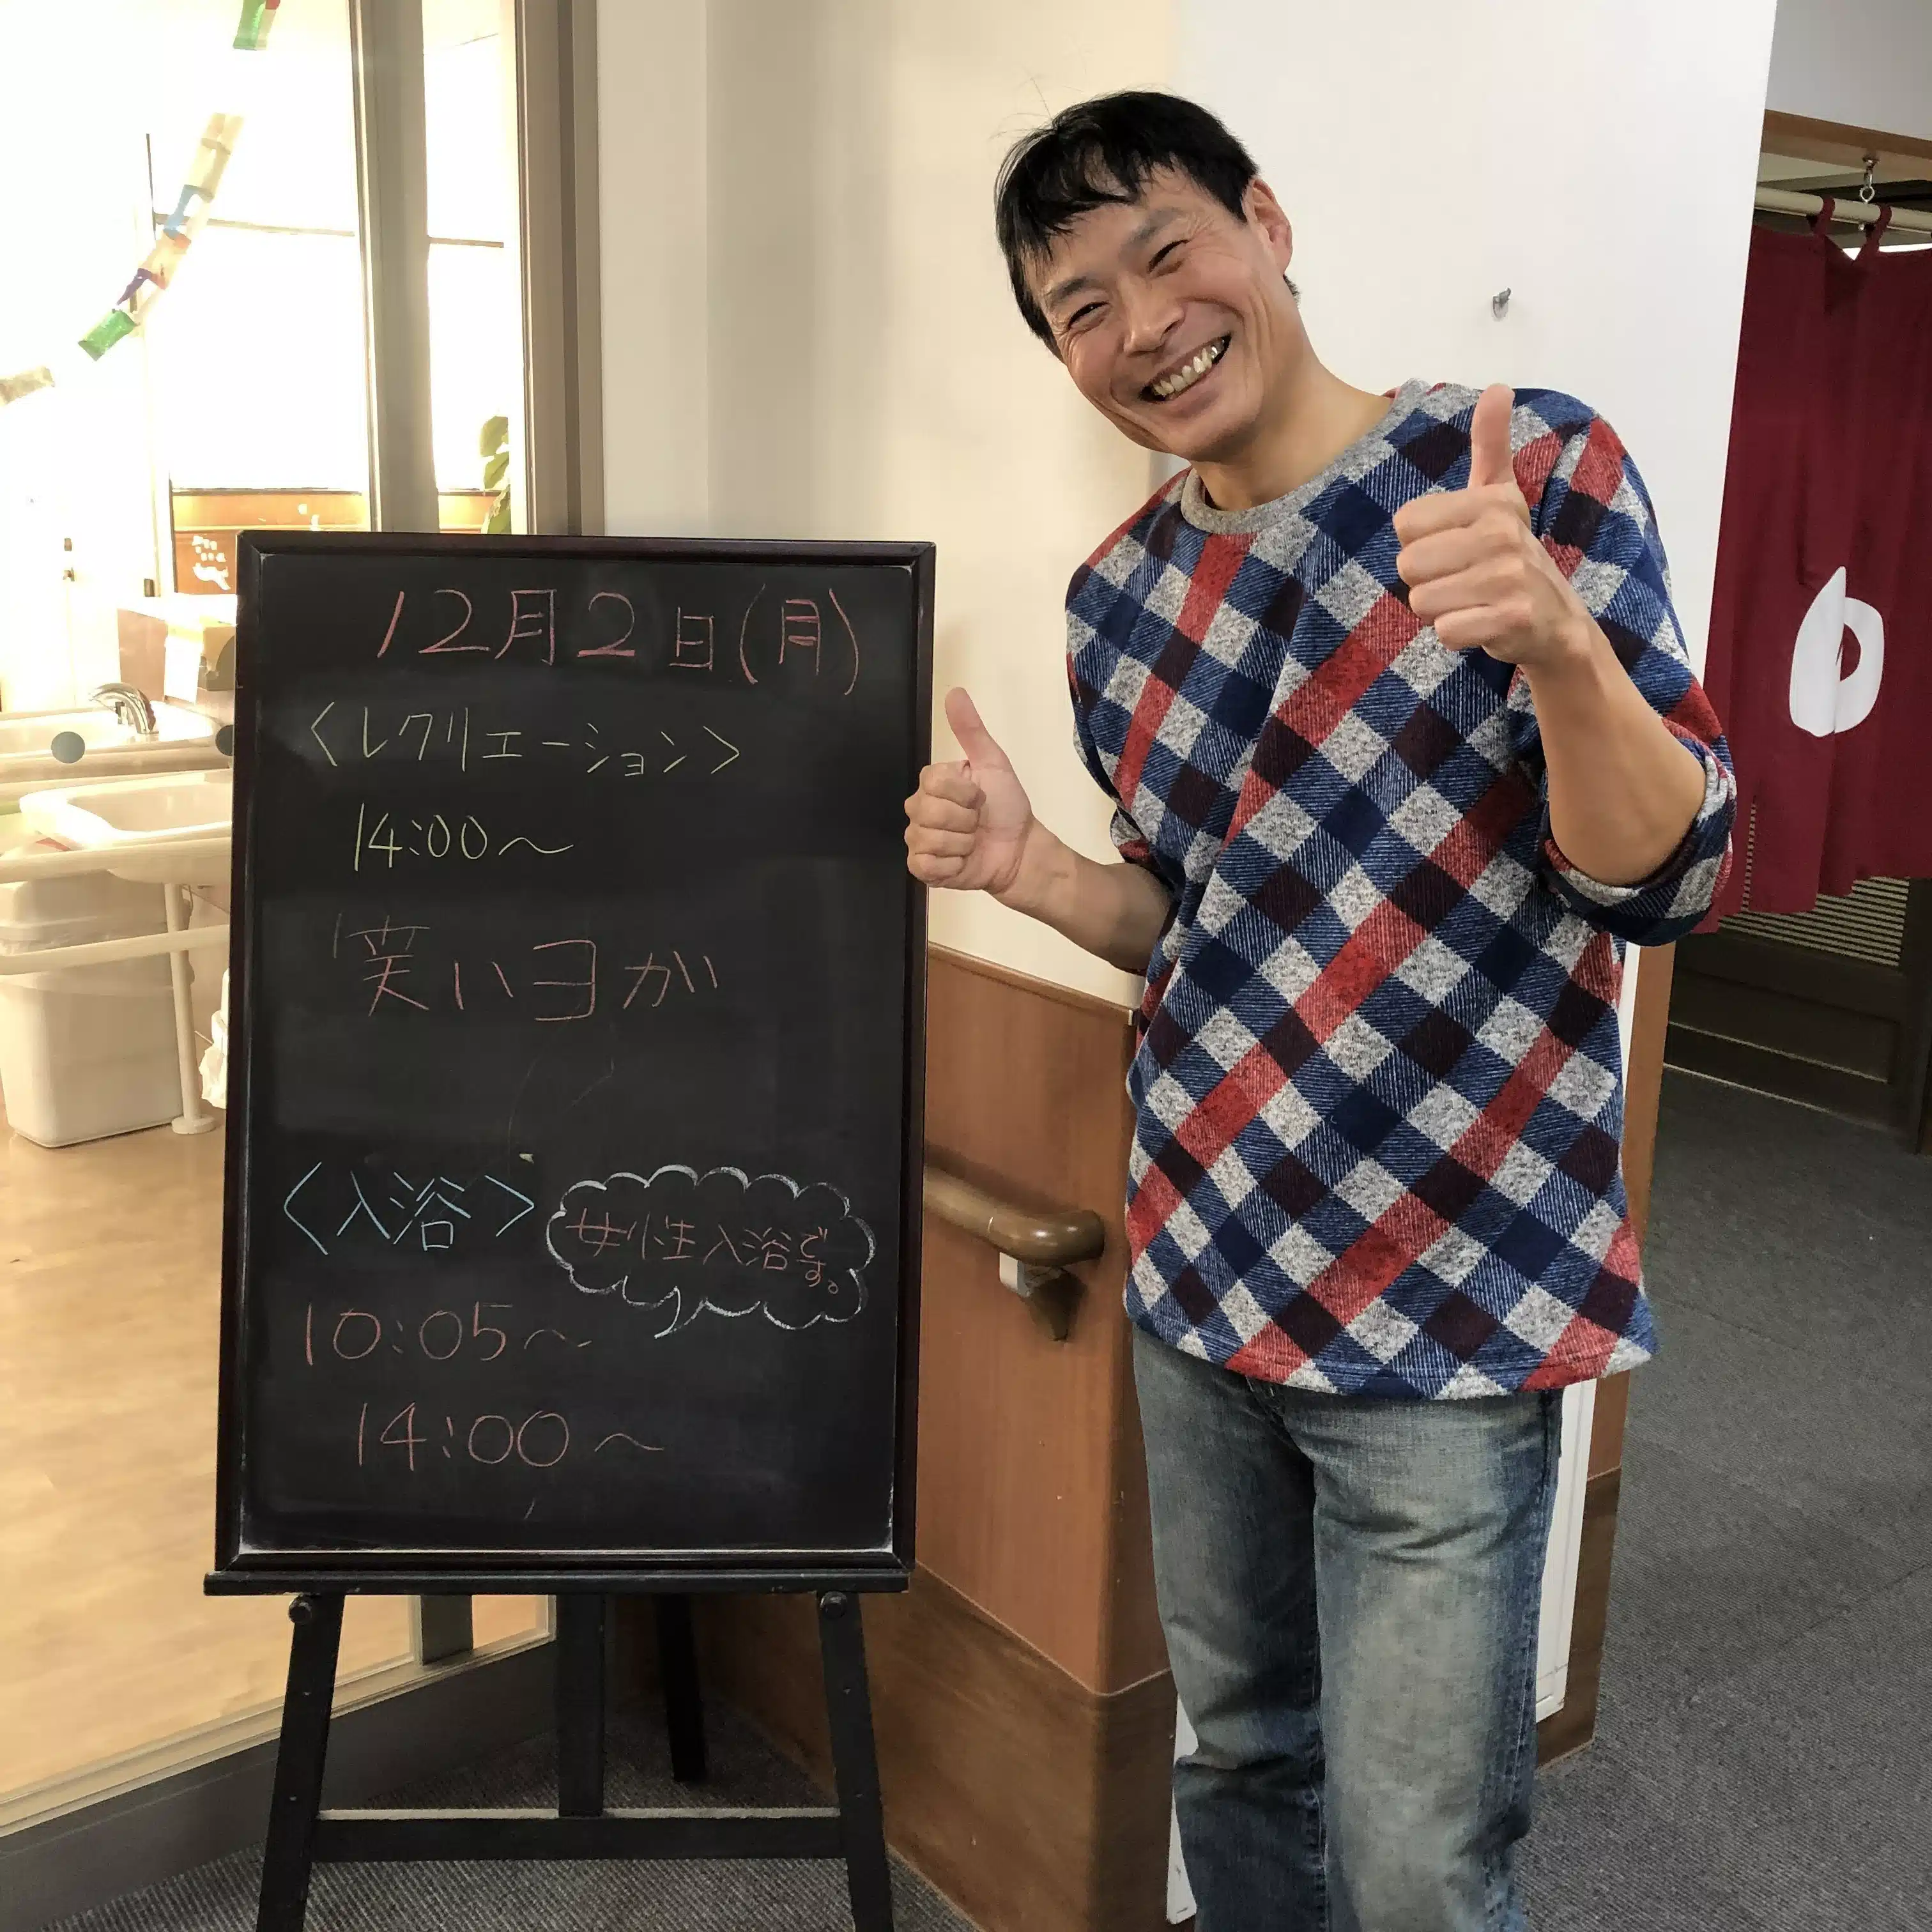 12月2日(月)
〈レクリエーション〉
14:00〜
笑いヨガ
〈入浴〉
女性入浴です。
10:05〜
14:00〜